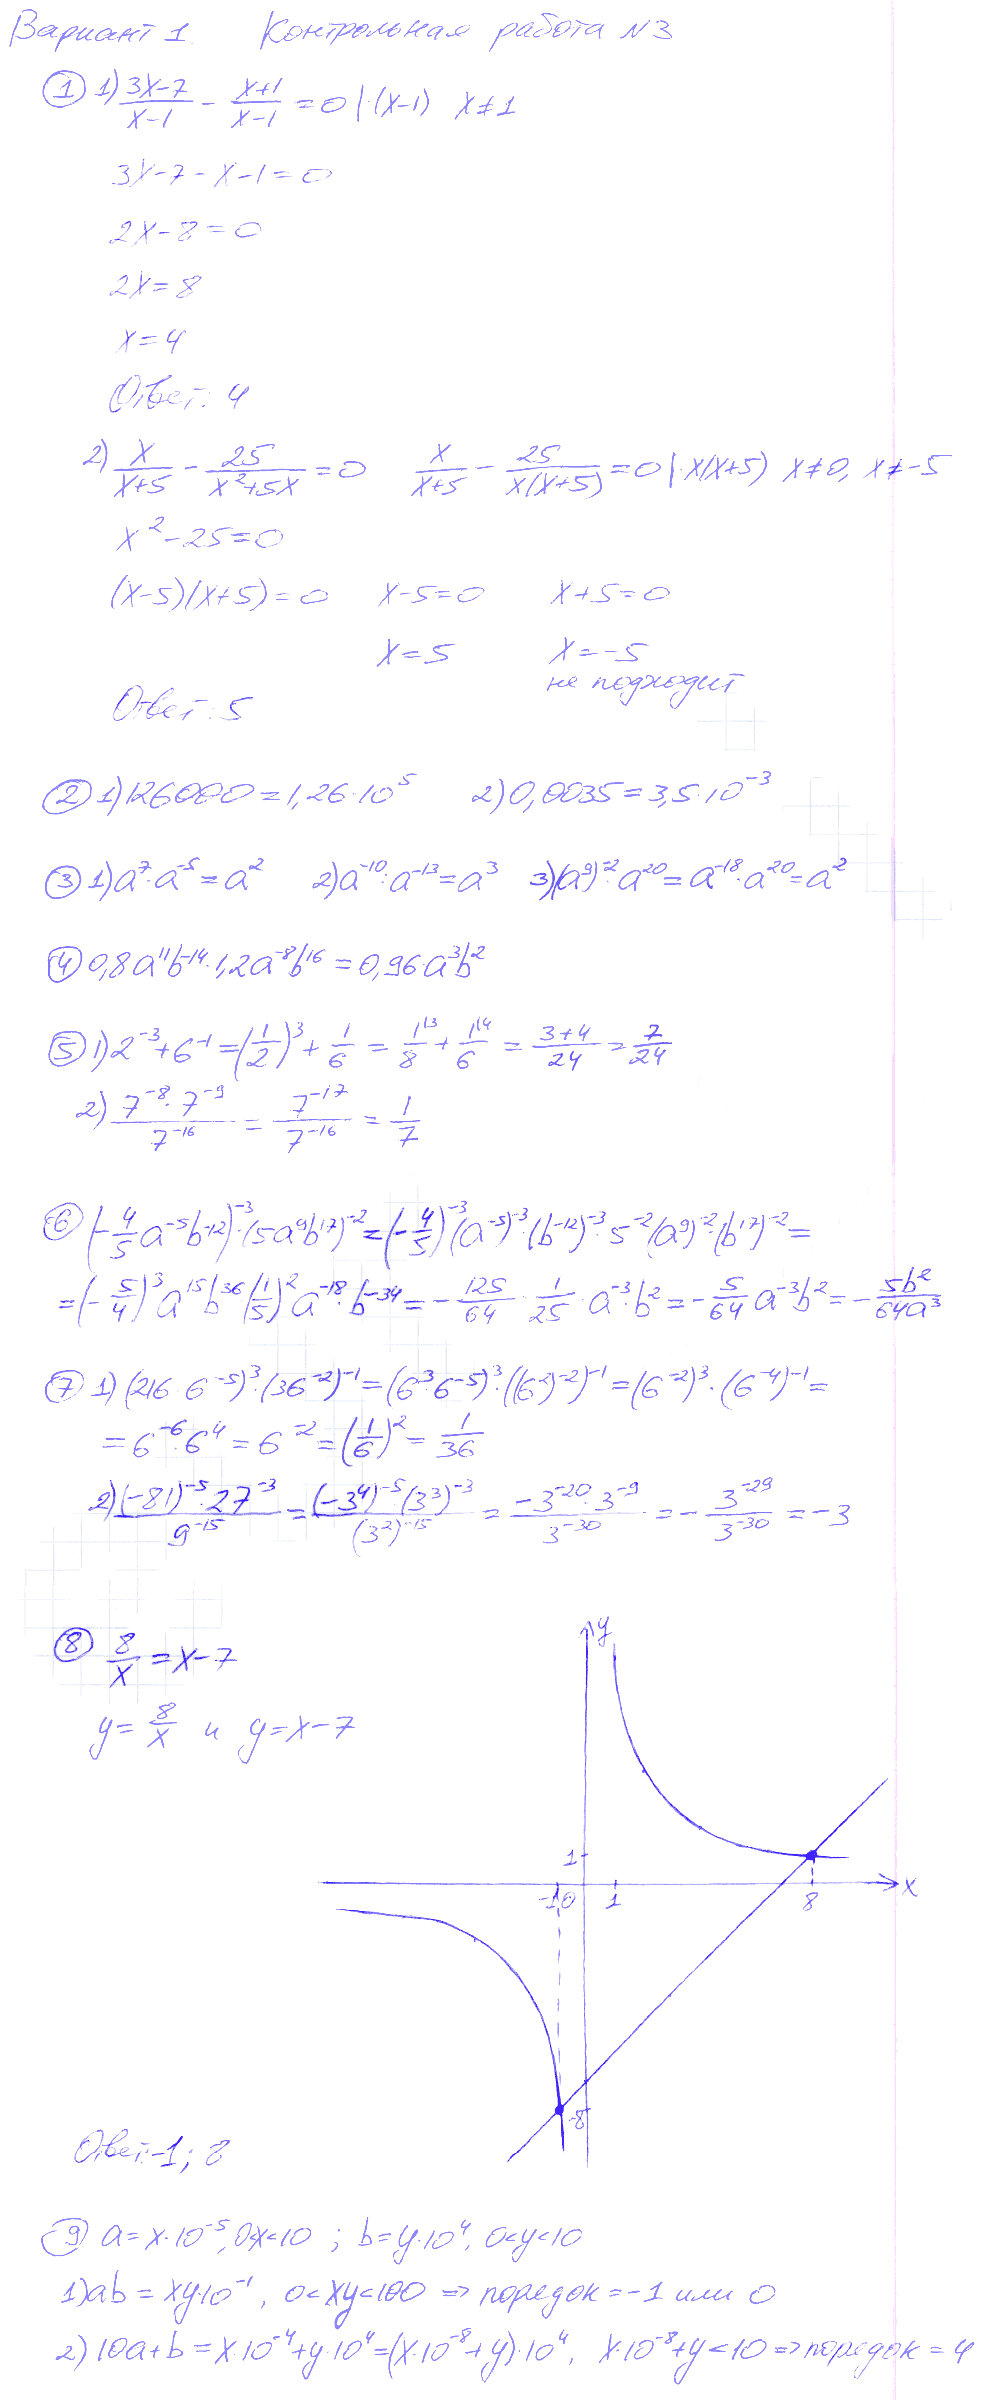 Вариант 1. Контрольная работа N3
① 1) (3x-7)/(x-1) - (x+1)/(x-1) = 0 | ·(x-1) x≠1
3x-7-x-1=0
2x-8=0
2x=8
x=4
Ответ: 4
2) x/(x+5) - 25/(x²+5x) = 0 x/(x+5) - 25/(x(x+5)) = 0 | ·x(x+5) x≠0, x≠-5
x²-25=0
(x-5)(x+5)=0 x-5=0 x+5=0
x=5 x=-5
не подходит
Ответ: 5
② 1) 126000=1,26·10⁵ 2) 0,0035=3,5·10⁻³
③ 1) a⁷·a⁻⁵=a² 2) a⁻¹⁰:a⁻¹³=a³ 3) (a⁹)⁻²·a²⁰=a⁻¹⁸·a²⁰=a²
④ 0,8a¹¹b⁻¹⁴·1,2a⁻⁸b¹⁶=0,96·a³b²
⑤ 1) 2⁻³+6⁻¹=(1/2)³+1/6=1^{\3}/8+1^{\4}/6=(3+4)/24=7/24
2) (7⁻⁸·7⁻⁹)/7⁻¹⁶=7⁻¹⁷/7⁻¹⁶=1/7
⑥ (-4/5 a⁻⁵b⁻¹²)⁻³·(5a⁹b¹⁷)⁻²=(-4/5)⁻³(a⁻⁵)⁻³·(b⁻¹²)⁻³·5⁻²(a⁹)⁻²·(b¹⁷)⁻²=
=(-5/4)³a¹⁵b³⁶(1/5)²a⁻¹⁸·b⁻³⁴=-125/64·1/25·a⁻³·b²=-5/64 a⁻³b²=-5b²/(64a³)
⑦ 1) (216·6⁻⁵)³·(36⁻²)⁻¹=(6³·6⁻⁵)³·((6²)⁻²)⁻¹=(6⁻²)³·(6⁻⁴)⁻¹=
=6⁻⁶·6⁴=6⁻²=(1/6)²=1/36
2) ((-81)⁻⁵·27⁻³)/9⁻¹⁵=((-3⁴)⁻⁵·(3³)⁻³)/(3²)⁻¹⁵=(-3⁻²⁰·3⁻⁹)/3⁻³⁰=-3⁻²⁹/3⁻³⁰=-3
⑧ 8/x=x-7
y=8/x и y=x-7
y
1
-1 0 1 8 x
-8
Ответ: -1; 8
⑨ a=x·10⁻⁵, 0<x<10; b=y·10⁴, 0<y<10
1) ab=xy·10⁻¹, 0<xy<100 ⇒ порядок=-1 или 0
2) 10a+b=x·10⁻⁴+y·10⁴=(x·10⁻⁸+y)·10⁴, x·10⁻⁸+y<10 ⇒ порядок=4